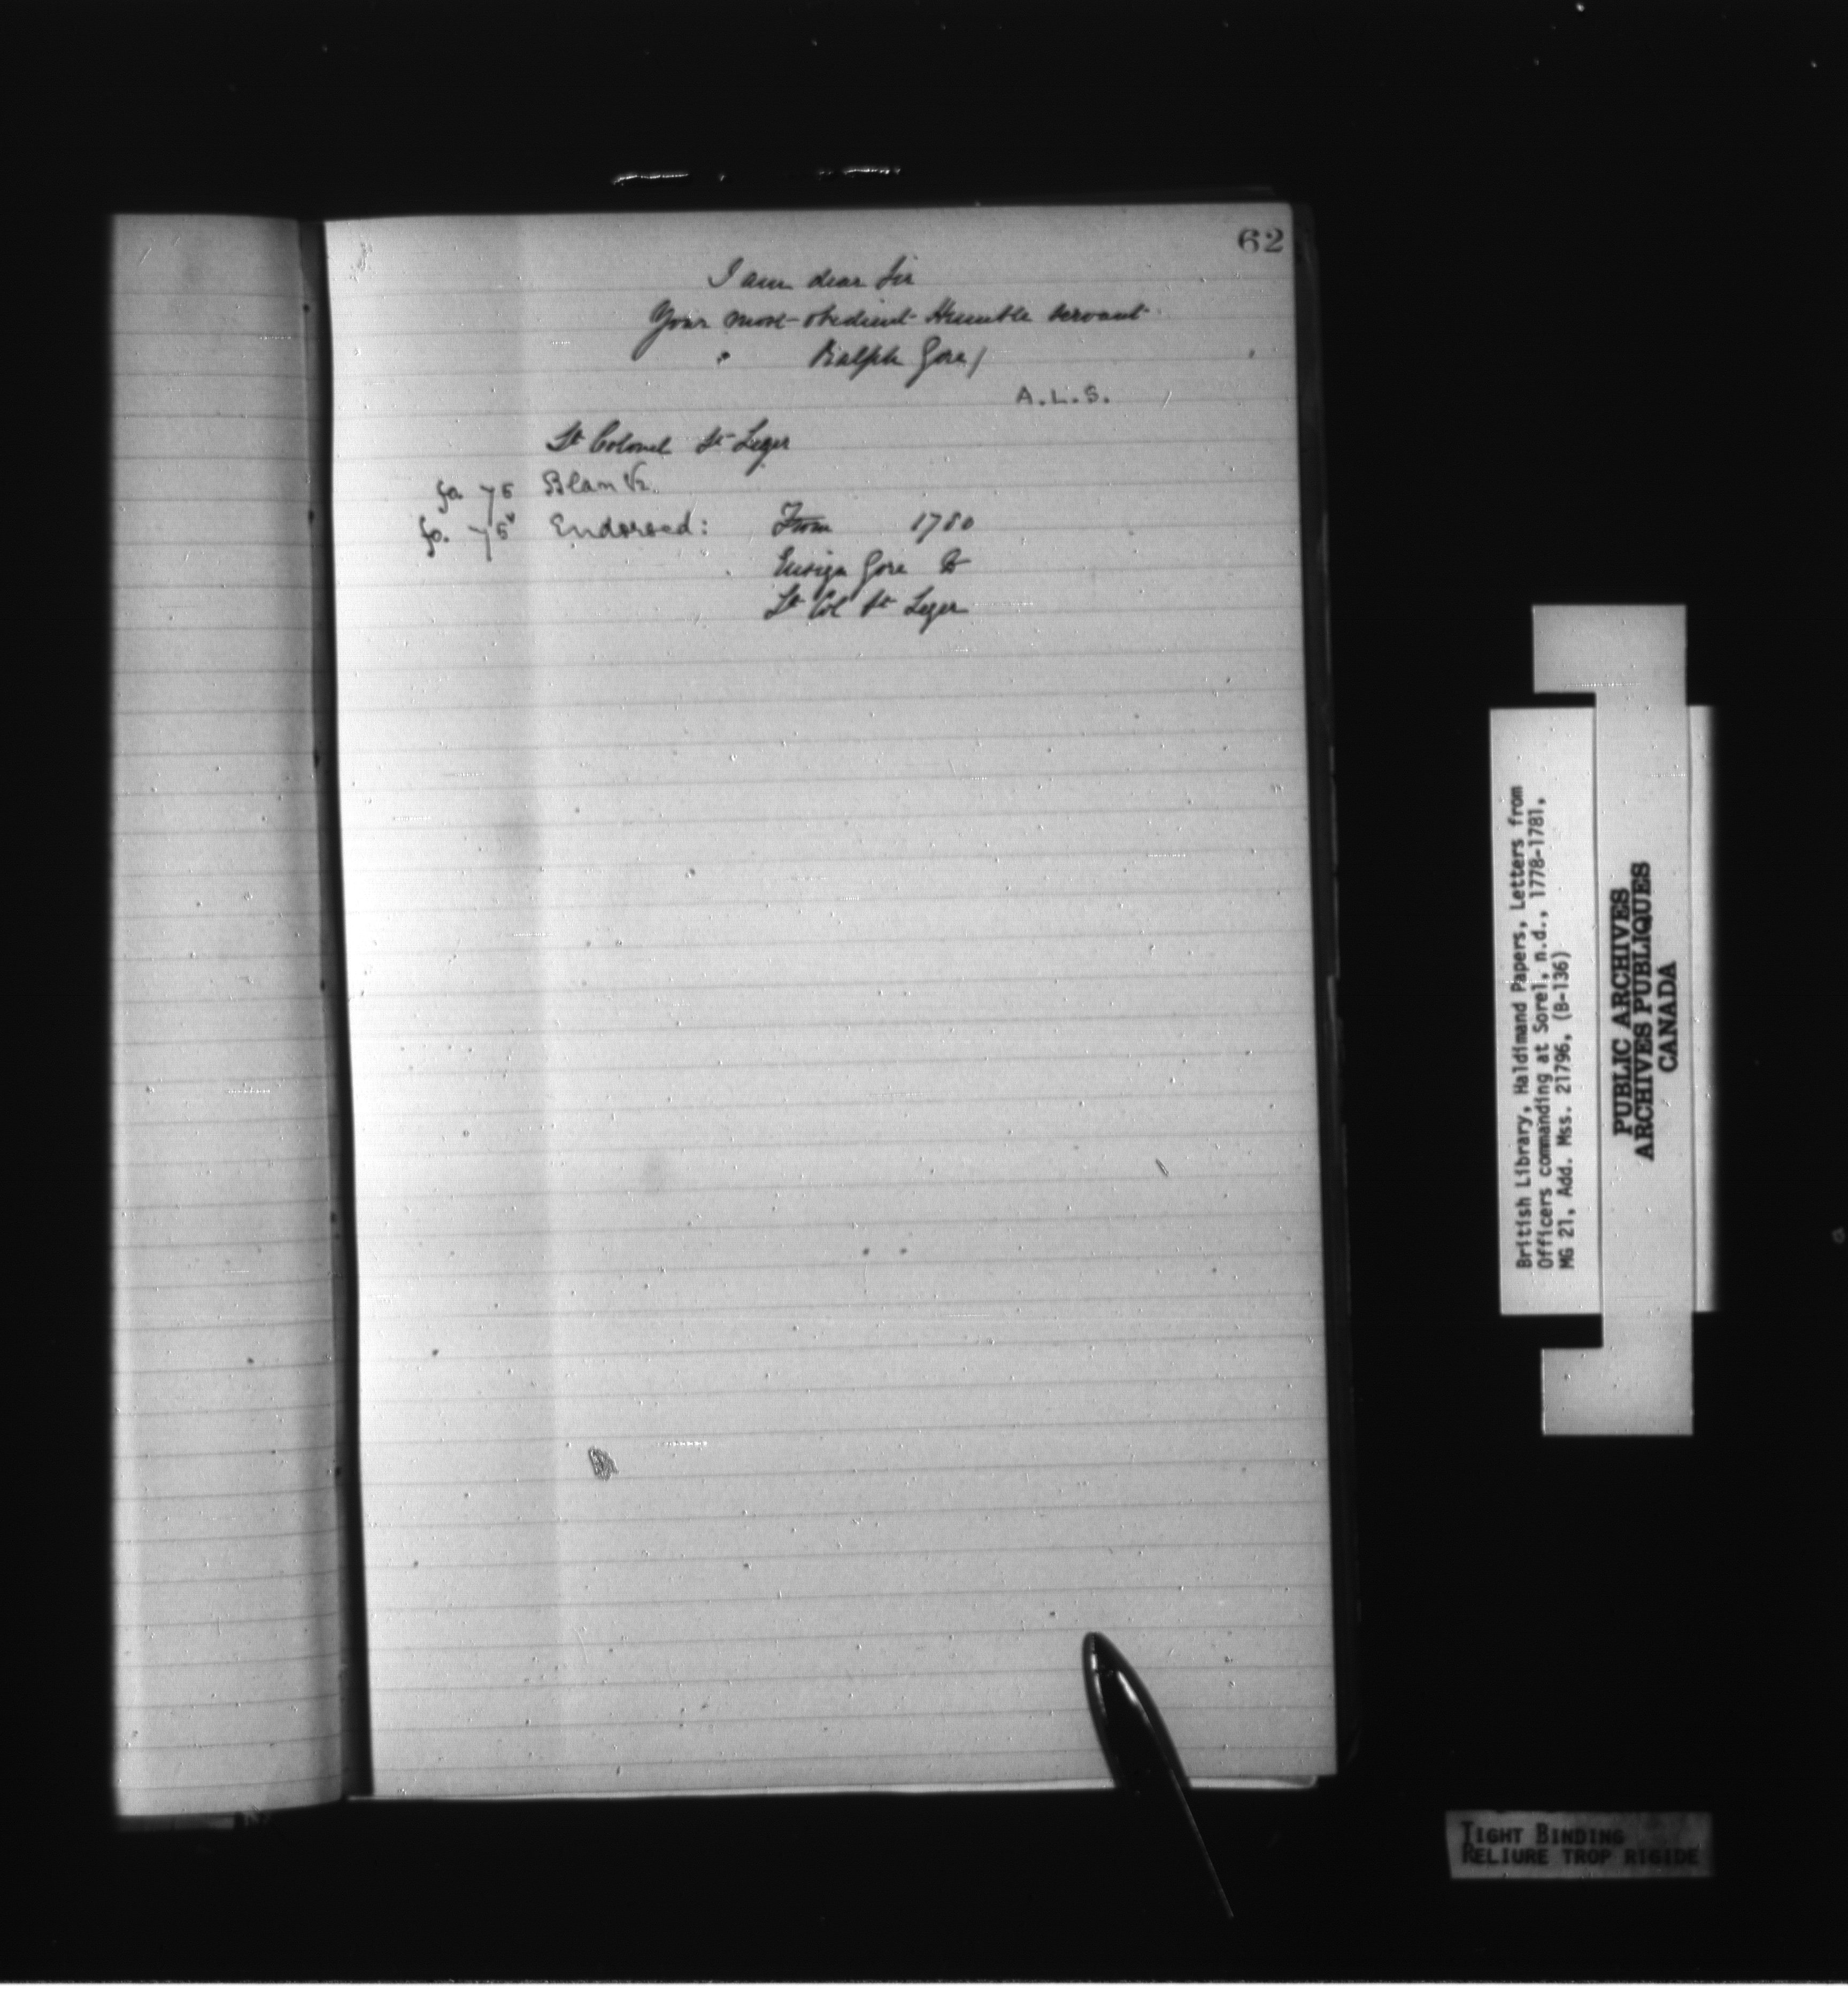 62
I am dear Sir
Your most obedient Humble servant
Ralph Gore/
A.L.S.
Lt Colonel St Leger
fo. 75 Blank.
fo. 75v Endorsed: From 1780
Ensign Gore to
Lt Col St Leger
British Library, Haldimand Papers, Letters from
Officers commanding at Sorel, n.d., 1778-1781,
MG 21, Add. Mss. 21796, (B-136)
PUBLIC ARCHIVES
ARCHIVES PUBLIQUES
CANADA
TIGHT BINDING
RELIURE TROP RIGIDE